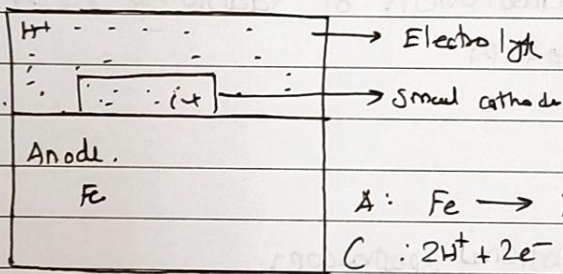 H+
Electrolyte
i+
Small cathode
Anode.
Fe
A: Fe →
C : 2H+ + 2e-